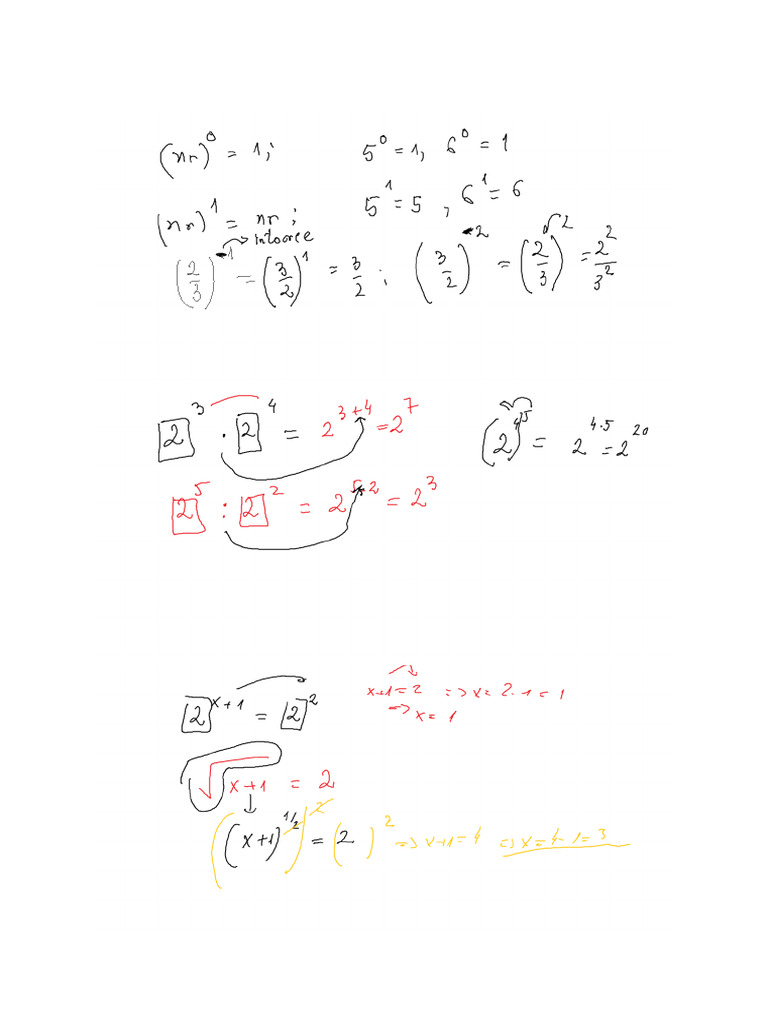 (nr)⁰ = 1; 5⁰ = 1, 6⁰ = 1
(nr)¹ = nr; 5¹ = 5, 6¹ = 6
→ intoarce
(2/3)⁻¹ = (3/2)¹ = 3/2; (3/2)⁻² = (2/3)² = 2²/3²
2³ · 2⁴ = 2³⁺⁴ = 2⁷ (2⁴)⁵ = 2⁴·⁵ = 2²⁰
2⁵ : 2² = 2⁵⁻² = 2³
x+1 = 2 => x = 2-1 = 1
2ˣ⁺¹ = 2² => x = 1
√x+1 = 2
((x+1)^1/2)² = (2)² => x+1 = 4 => x = 4-1 = 3